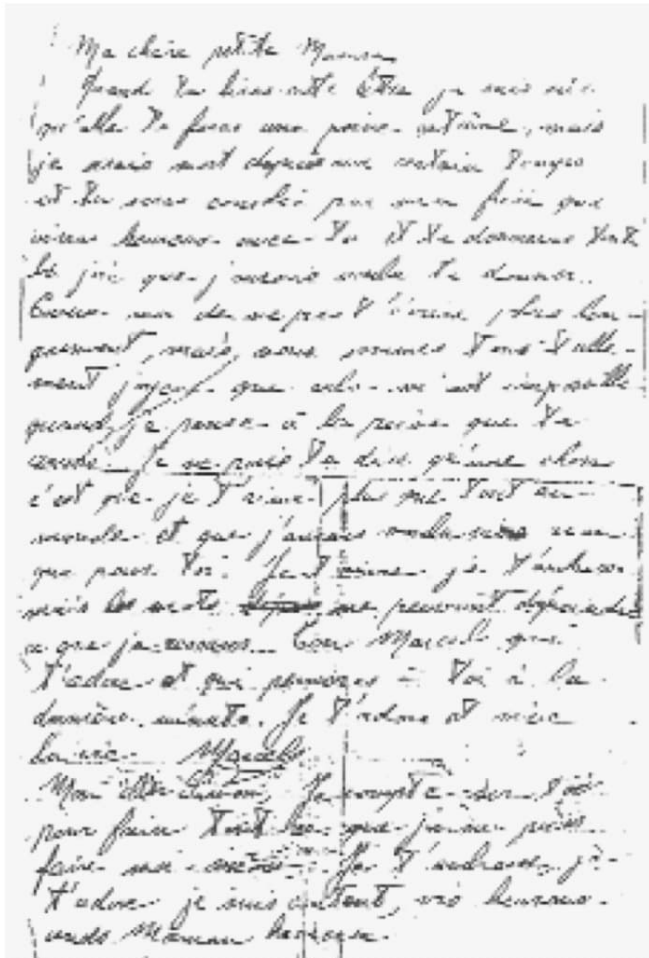 Ma chère petite Maman
Quand tu liras cette lettre je suis sûr
qu'elle te fera une peine extrême, mais
je serais mort depuis un certain temps
et tu seras consolée par mon frère qui
vivra heureux avec toi et te donnera toute
la joie que j'aurais voulu te donner.
Excuse moi de ne pas t'écrire plus lon-
guement, mais, nous sommes tous telle-
ment joyeux que cela m'est impossible
quand je pense à la peine que tu
Je ne puis te dire qu'une chose
c'est que je t'aime plus que tout au
monde et que j'aurais voulu vivre rien
que pour toi. Je t'aime, je t'embrasse
mais les mots ne peuvent dépeindre
ce que je ressens. Ton Marcel qui
t'adore et qui pensera à toi à la
dernière minute. Je t'adore et vive
la vie. Marcel
Mon Je compte sur toi
pour faire tout ce que je ne puis
faire moi-même. Je t'embrasse, je
t'adore je suis content, vis heureux
rends Maman heureuse.